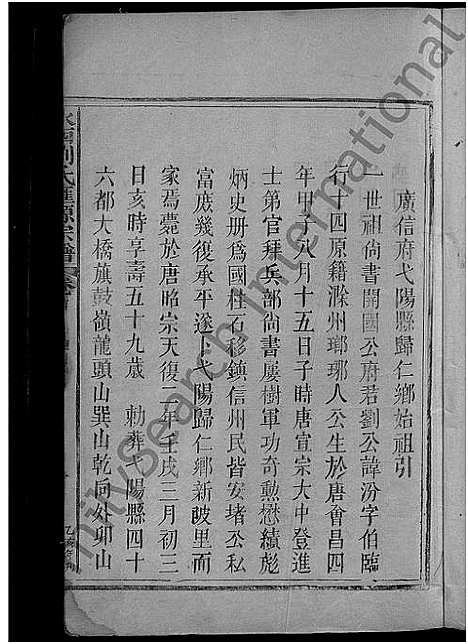 廣信府弋陽縣歸仁鄉始祖引
一世祖尚書開國公府君劉公諱汾字伯臨
行十四原籍滁州瑯琊人公生於唐會昌四
年甲子八月十五日子時唐宣宗大中登進
士第官拜兵部尚書屢樹軍功奇勲懋績彪
炳史册爲國柱石移鎮信州民皆安堵公私
富庶幾復承平遂卜弋陽歸仁鄉新陂里而
家焉薨於唐昭宗天復二年壬戌三月初三
日亥時享壽五十九歲 勅葬弋陽縣四十
六都大橋旗鼓嶺龍頭山巽山乾向处卯山
劉氏
源宗譜
FamilySearch International